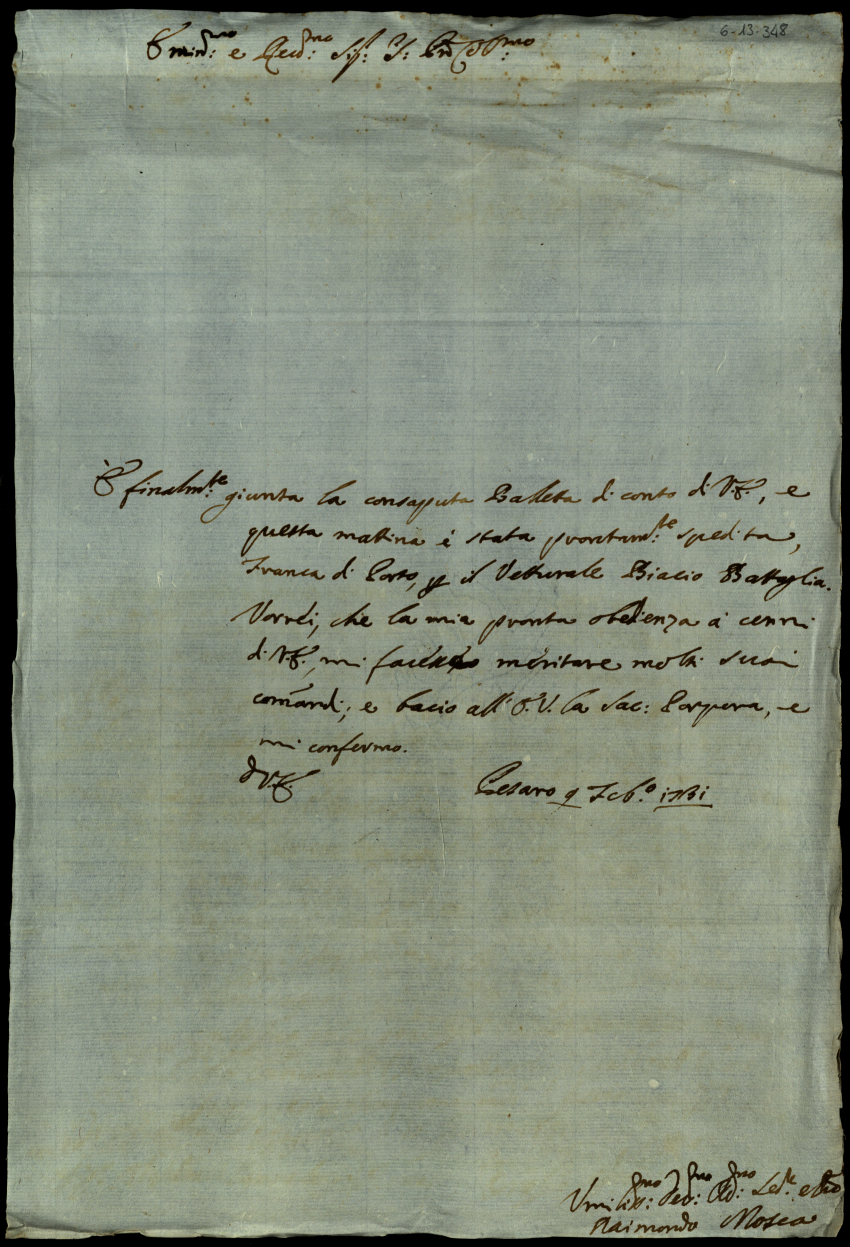 6-13-348
Emin:mo e Rev:mo Sig: P: Col:mo
È finalm:te giunta la consaputa Balletta di conto di V.E., e
questa mattina è stata prontam:te spedita,
Franca di Porto, p il Vetturale Biacio Battaglia.
Vorrei, che la mia pronta obedienza a' cenni
di V.E., mi facesse meritare molti suoi
comãndi; e bacio all' E.V. la Sac: Porpora, e
mi confermo.
D V.E.
Pesaro 9 Feb.o 1731
Umiliss:mo Dev:mo Obb:mo
Raimondo Mosca